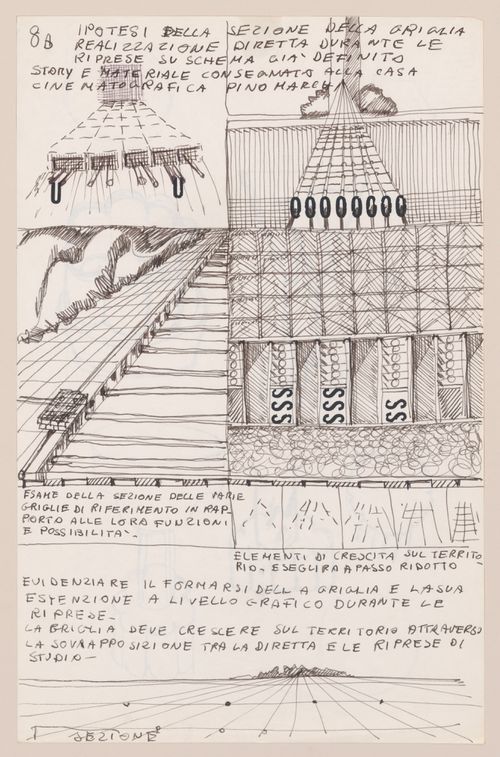 8B
IPOTESI DELLA SEZIONE DELLA GRIGLIA
REALIZZAZIONE DIRETTA DURANTE LE
RIPRESE SU SCHEMA GIA' DEFINITO
STORY E MATERIALE CONSEGNATO ALLA CASA
CINEMATOGRAFICA PINO MARCH
ESAME DELLA SEZIONE DELLE VARIE
GRIGLIE DI RIFERIMENTO IN RAP-
PORTO ALLE LORO FUNZIONI
E POSSIBILITA'-
ELEMENTI DI CRESCITA SUL TERRITO-
RIO- ESEGUIRA A PASSO RIDOTTO
EVIDENZIARE IL FORMARSI DELLA GRIGLIA E LA SUA
ESTENZIONE A LIVELLO GRAFICO DURANTE LE
RIPRESE-
LA GRIGLIA DEVE CRESCERE SUL TERRITORIO ATTRAVERSO
LA SOVRAPPOSIZIONE TRA LA DIRETTA E LE RIPRESE DI
STUDIO-
SEZIONE